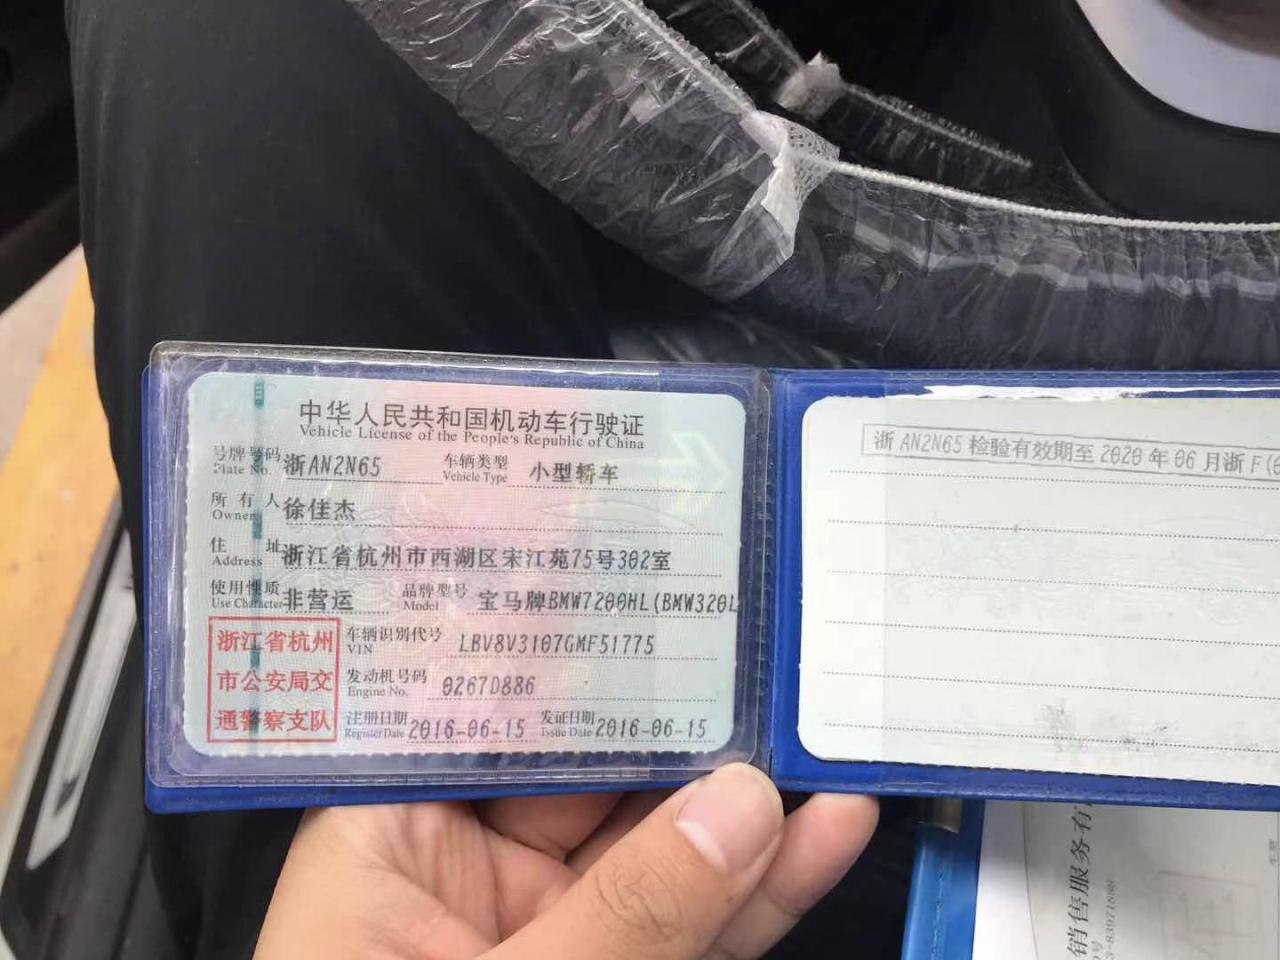 中华人民共和国机动车行驶证
Vehicle License of the People's Republic of China
号牌号码 浙AN2N65 车辆类型 小型轿车
Plate No. Vehicle Type
所有人 徐佳杰
Owner
住址 浙江省杭州市西湖区宋江苑75号302室
Address
使用性质 非营运 品牌型号 宝马牌BMW7200HL(BMW320L
Use Character Model
浙江省杭州
市公安局交
通警察支队
车辆识别代号 LBV8V3107GMF51775
VIN
发动机号码 0267D886
Engine No.
注册日期 2016-06-15 发证日期 2016-06-15
Register Date Issue Date
浙AN2N65检验有效期至2020年06月浙F(
销售服务有